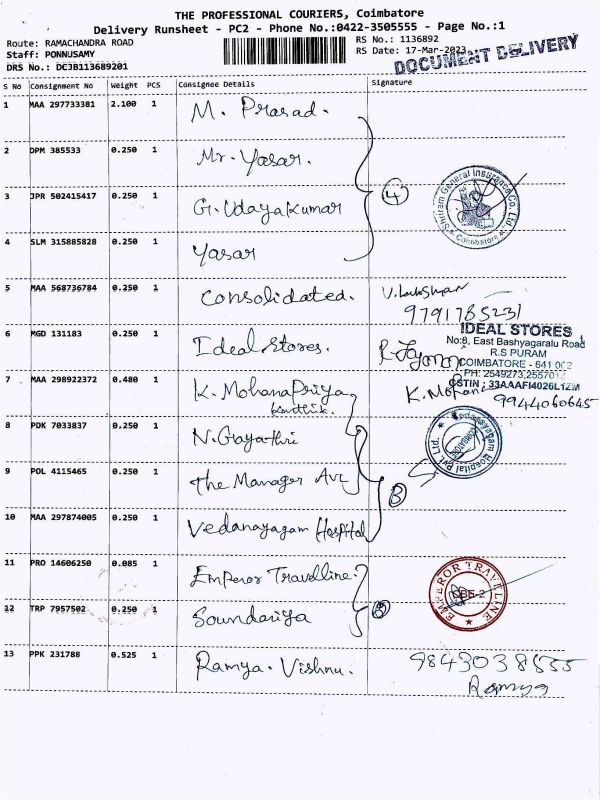 THE PROFESSIONAL COURIERS, Coimbatore
Delivery Runsheet - PC2 - Phone No.:0422-3505555 - Page No.:1
Route: RAMACHANDRA ROAD
RS No.: 1136892
Staff: PONNUSAMY
RS Date: 17-Mar-2023
DRS No.: DCJB113689201
DOCUMENT DELIVERY
S No Consignment No Weight PCS Consignee Details Signature
1 MAA 297733381 2.100 1 M. Prasad.
2 DPM 385533 0.250 1 Mr. Yasar.
3 JPR 502415417 0.250 1 G. Udayakumar
4
Shriram General Insurance Co. Ltd
Coimbatore
4 SLM 315885828 0.250 1 Yasar
5 MAA 568736784 0.250 1 Consolidated.
9791785231
6 MGD 131183 0.250 1 Ideal Stores.
IDEAL STORES
No:8, East Bashyagaralu Road
R.S PURAM
COIMBATORE - 641 002
PH: 2549273,
GSTIN : 33AAAFI4026L1ZM
7 MAA 298922372 0.480 1 K. MohanaPriya
Karthik.
K. Mohan
9944060645
8 PDK 7033837 0.250 1 N. Gayathri
Vedanayagam Hospital Pvt Ltd.
9 POL 4115465 0.250 1 The Manager
10 MAA 297874005 0.250 1 Vedanayagam Hospital
11 PRO 14606250 0.085 1 Emperor Travelline.
EMPEROR TRAVELINE
CBE-2
12 TRP 7957502 0.250 1 Soundariya
13 PPK 231788 0.525 1 Ramya. Vishnu.
Ramya